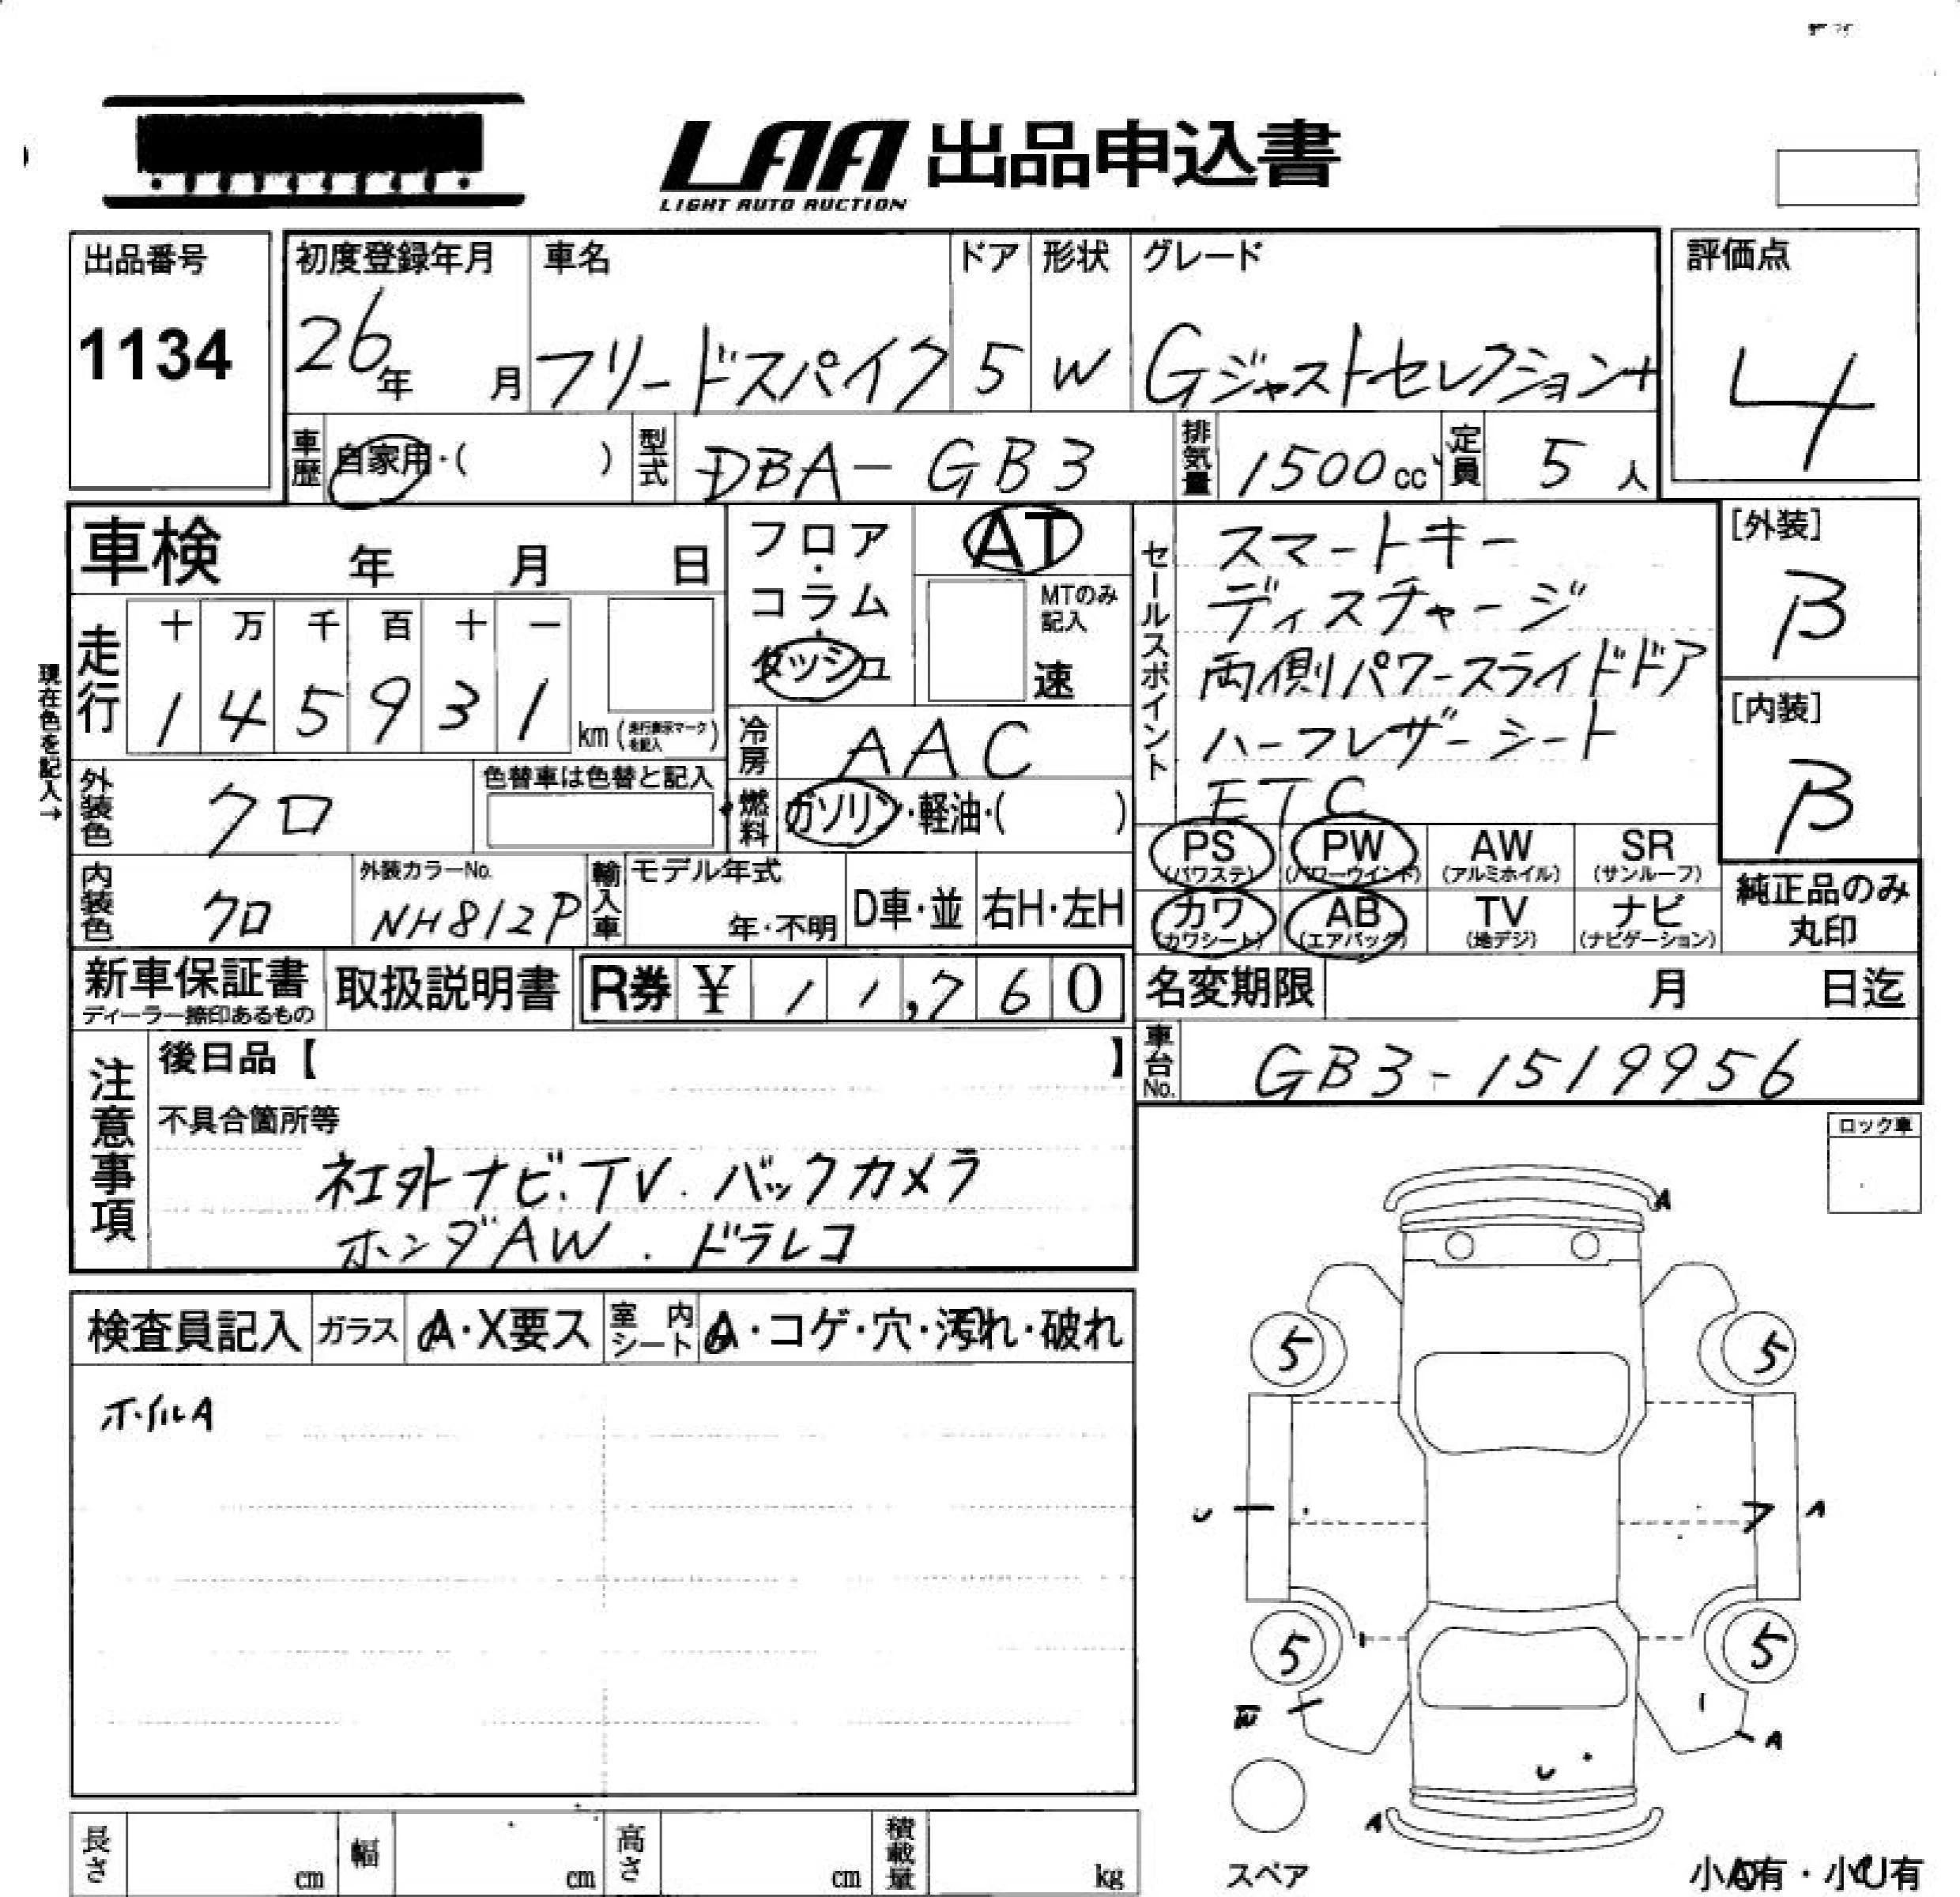 LAA 出品申込書
LIGHT AUTO AUCTION
出品番号
1134
初度登録年月
26年 月
車名
フリードスパイク
ドア
5
形状
W
グレード
Gジャストセレクション+
評価点
4
車歴 自家用・( )
型式 DBA-GB3
排気量 1500cc
定員 5人
車検 年 月 日
フロア・コラム・ダッシュ
AT
MTのみ記入
速
セールスポイント
スマートキー
ディスチャージ
両側パワースライドドア
ハーフレザーシート
ETC
[外装]
β
[内装]
β
現在色を記入→
走行
十 万 千 百 十 一
1 4 5 9 3 1 km (走行表示マークを記入)
冷房 AAC
外装色 クロ
色替車は色替と記入
燃料 ガソリン・軽油・( )
PS (パワステ) PW (パワーウインド) AW (アルミホイル) SR (サンルーフ)
カワ (カワシート) AB (エアバッグ) TV (地デジ) ナビ (ナビゲーション)
純正品のみ丸印
内装色 クロ
外装カラーNo.
NH812P
輸入車
モデル年式
年・不明
D車・並
右H・左H
新車保証書
ディーラー捺印あるもの
取扱説明書
R券 ¥ 11,760
名変期限 月 日迄
車台No. GB3-1519956
注意事項
後日品【 】
不具合箇所等
社外ナビ.TV.バックカメラ
ホンダAW.ドラレコ
ロック車
A
検査員記入
ガラス A・X要ス
室内シート A・コゲ・穴・汚れ・破れ
ホイルA
5 5
U A
5 5
W A
U
A
スペア
小A有・小U有
長さ cm
幅 cm
高さ cm
積載量 kg